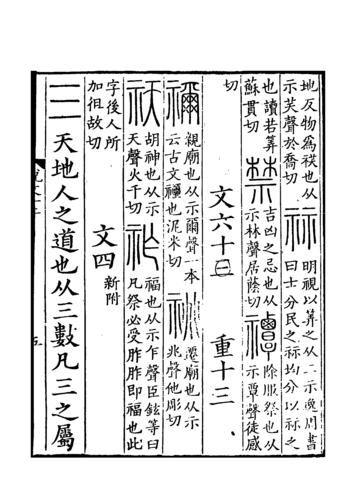 地反物爲祅也从
示芺聲於喬切
祘
明視以筭之从二示逸周書
曰士分民之祘均分以祘之
也讀若筭
蘇貫切
禁
吉凶之忌也从
示林聲居蔭切
禫
除服祭也从
示覃聲徒感
切
文六十三
重十三
禰
親廟也从示爾聲一本
云古文禰也泥米切
祧
遷廟也从示
兆聲他彫切
祆
胡神也从示
天聲火千切
祚
福也从示乍聲臣鉉等曰
凡祭必受胙胙即福也此
字後人所
加徂故切
文四
新附
三
天地人之道也从三數凡三之屬